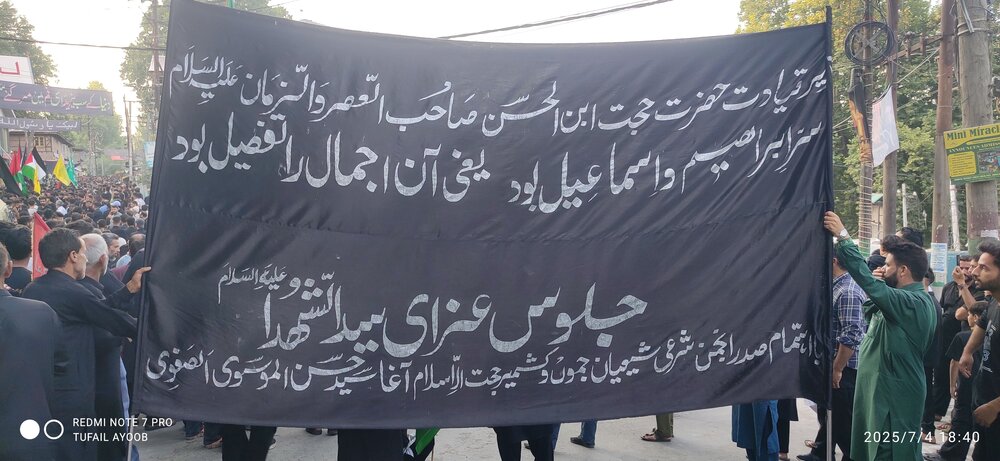 زیر قیادت حضرت حجت ابن الحسن صاحب العصر والزمان علیہ السلام
سرِ ابراھیم و اسماعیل بود یعنی آن اجمال را تفصیل بود
جلوس عزای سید الشھدا علیہ السلام
با اہتمام صدر انجمن شرعی شیعیان جموں و کشمیر حجت الاسلام آغا سید حسن الموسوی الصفوی
Mini Miracle
REDMI NOTE 7 PRO
TUFAIL AYOOB
2025/7/4 18:40